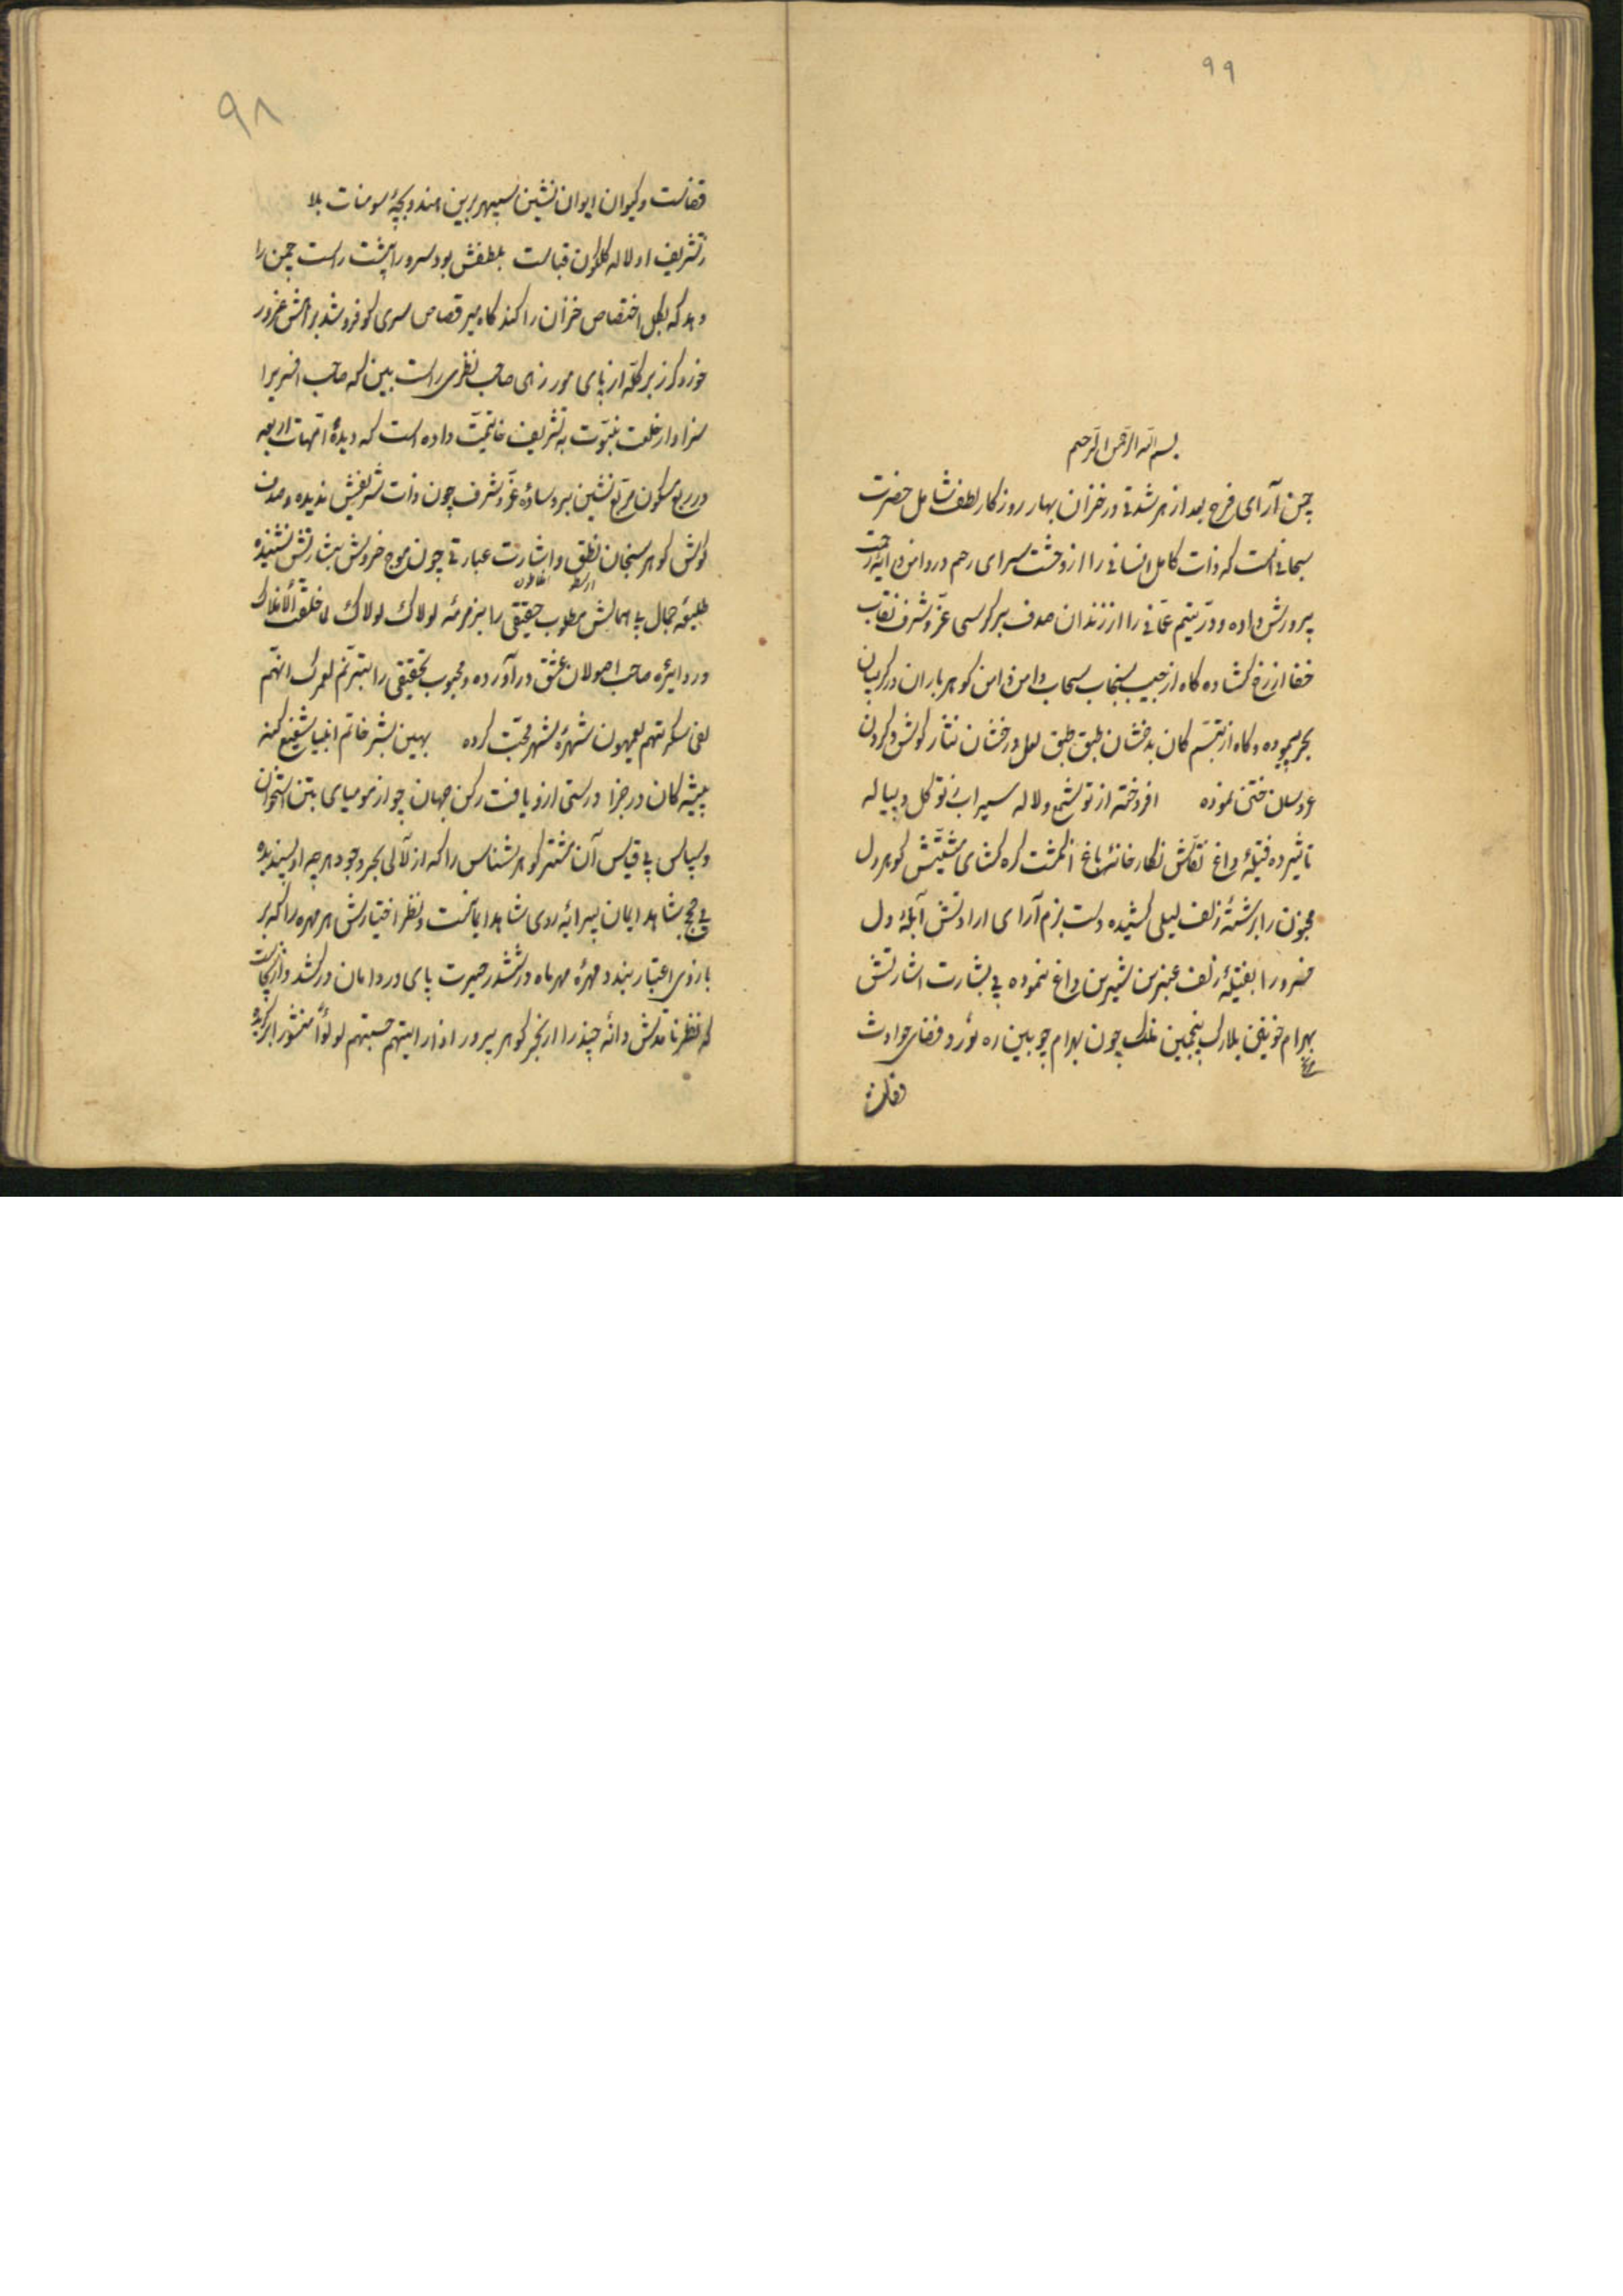 ۹۹
بسم الله الرحمن الرحیم
چمن آرای فرح بعد از هر شدتی در خزان بهار روزکار لطف شامل حضرت
سبحانی است که ذات کامل انسانی را از وحشت سرای رحم در دامن دایهٔ رحمت
پرورش داده و در یتیم عمانی را از زندان صدف بر کرسی عز و شرف نقاب
خفا از رخ کشاده کاه از جیب سنجاب سحاب دامن دامن کوهر باران در کریبان
بحر پیموده و کاه از تبسم کان بدخشان طبق طبق لعل درخشان نثار کوش و کردن
عروسان ختن نموده افروخته از تو شمع و لاله سیراب ز تو کل و پیاله
تاثیر ده فتیلهٔ داغ نقاش نکارخانهٔ باغ انکشت کره کشای مشیتش کوهر دل
مجنون را برشتهٔ زلف لیلی کشیده دست بزم آرای ارادتش آبلهٔ دل
را بفتیلهٔ زلف عنبرین شیرین داغ نموده بی بشارت اشارتش
بهرام پنجمین فلک چون بهرام چوبین ره نورد فضای حوادث
قضاست
۹۸
قضاست و کیوان ایوان نشین سپهر برین هندو بچهٔ سومنات بلا
ز تشریف او لاله کلکون قباست بلطفش بود سرو را پشت راست چمن را
دهد که بکل اختصاص خزان را کند کاه میر قصاص سری کو فروشد غرور
خورد کرز بر کله از پای مور زهی صاحب نظری راست بین که صاحب افسریرا
سزاوار خلعت نبوت به تشریف خاتمیت داده است که دیدهٔ امهات اربعه
در ربع مسکون مربع نشین بر وسادهٔ عز و شرف چون ذات شریفش ندیده و صدف
کوش کوهر سنجان نطق و اشارت عبارتی چون موج خروش بشارتش نشنیده
ارسطو افلاطون
طلیعهٔ جمال مطلوب حقیقی را بزمزمهٔ لولاک لولاک لما خلقت الافلاک
در دایرهٔ صاحب اصولان عشق در آورده و محبوب تحقیقی را بترنم لعمرک انهم
لفی سکرتهم یعمهون شهرهٔ شهر محبت کرده بهین بشر خاتم انبیا شفیع کنه
پیشه کان در جزا درستی ازو یافت رکن جهان چو از مومیای بتن استخوان
و سپاس بی قیاس آن کوهر شناس را که از لآلی بحر وجود هرچه او پسندیده
شاهد ایمان پیرایهٔ روی شاهد ایمانست و نظر اختیارش هر مهره را که بر
بازوی اعتبار بندد مهرهٔ مهر ماه در ششدر حیرت پای در دامان درکشد
که نظر ناقدش دانهٔ چند را از بحر کوهر پرور اذا رایتهم حسبتهم لولوا منثورا